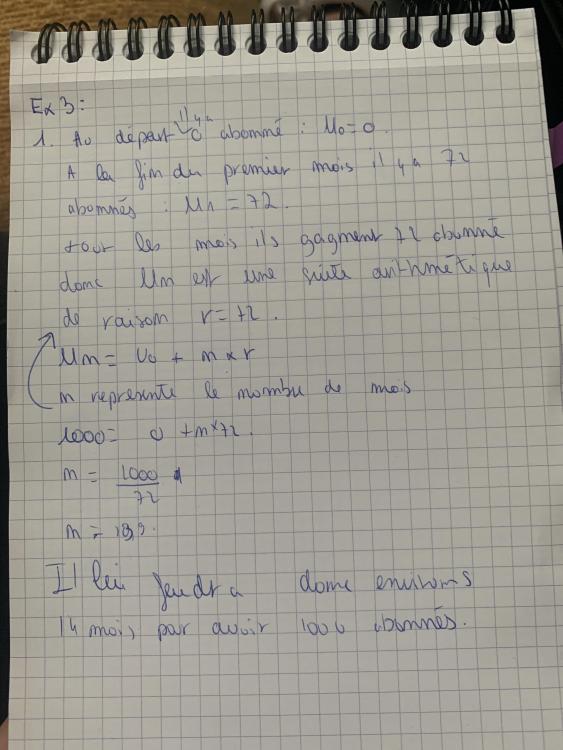 Ex 3:
il y a
1. Au départ 0 abonné : U0 = 0.
A la fin du premier mois il y a 72
abonnés : U1 = 72.
tour les mois ils gagment 72 abonné
donc Un est une suite arithmétique
de raison r = 72.
Un = U0 + n x r
n represente le nombre de mois
1000 = 0 + n x 72.
n = 1000
72
n =
Il lui faudra donc environs
14 mois par avoir 1000 abonnés.